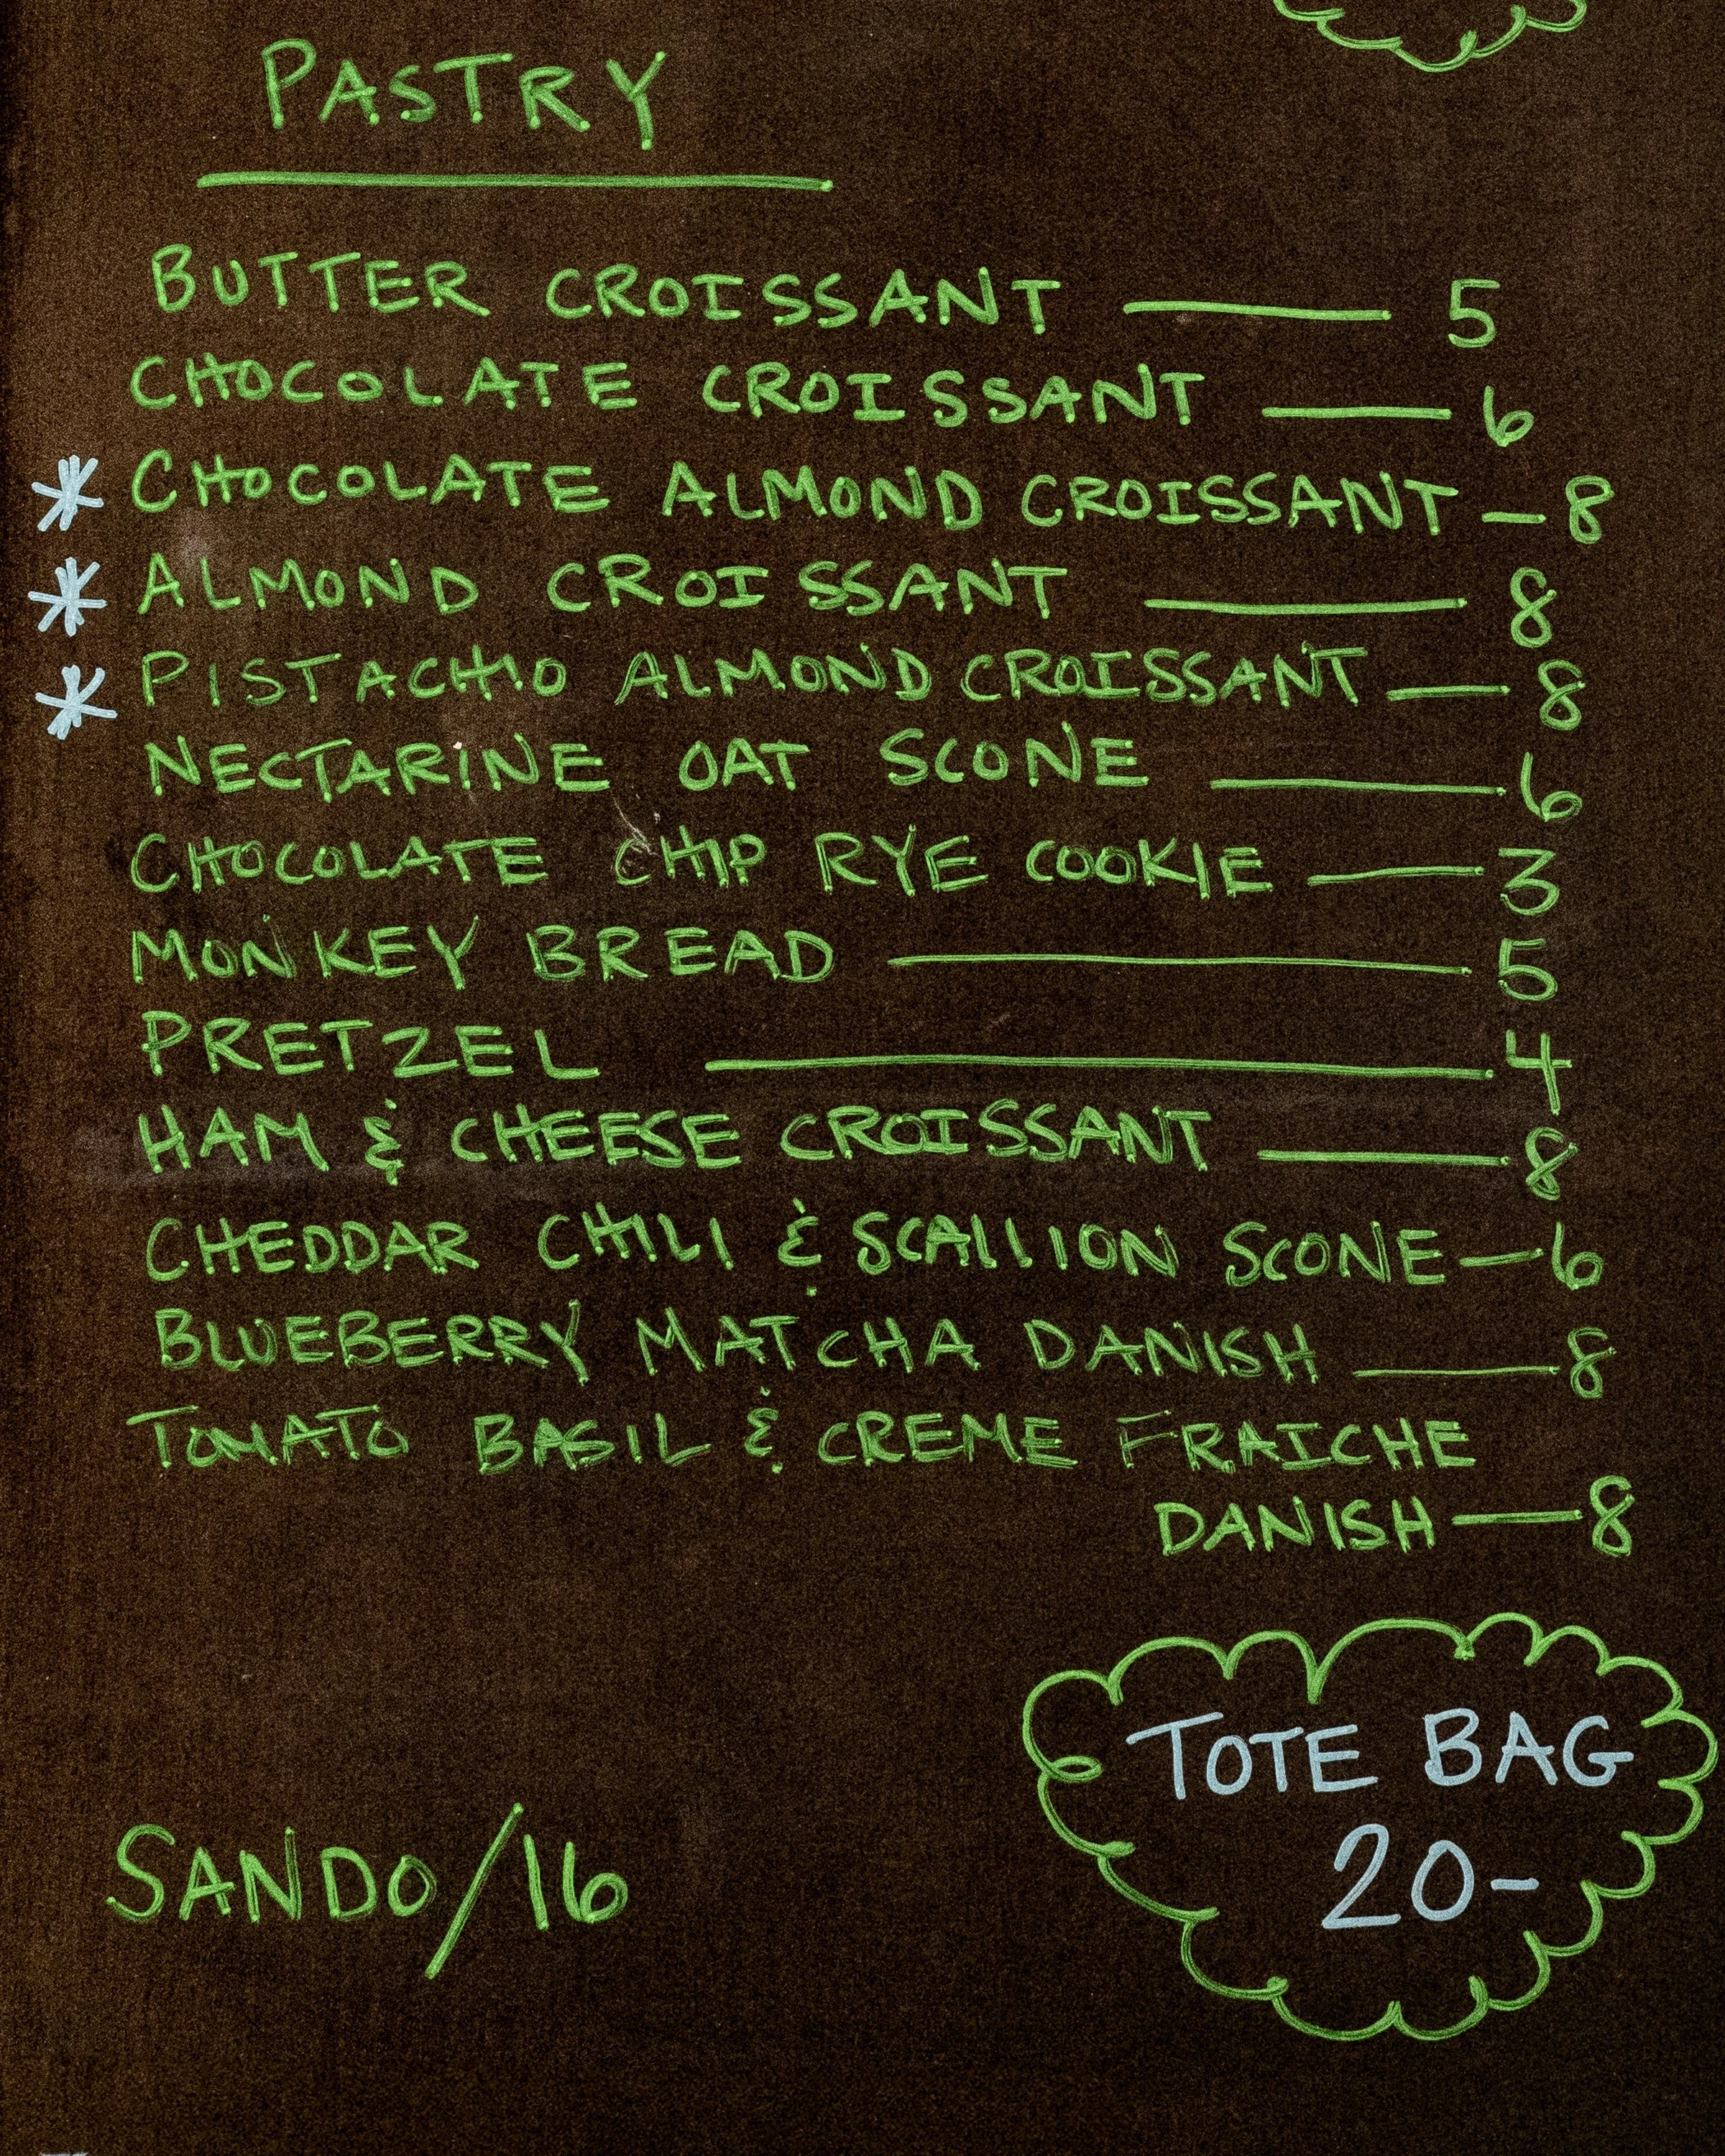 PASTRY
BUTTER CROISSANT — 5
CHOCOLATE CROISSANT — 6
* CHOCOLATE ALMOND CROISSANT — 8
* ALMOND CROISSANT — 8
* PISTACHIO ALMOND CROISSANT — 8
NECTARINE OAT SCONE — 6
CHOCOLATE CHIP RYE COOKIE — 3
MONKEY BREAD — 5
PRETZEL — 4
HAM & CHEESE CROISSANT — 8
CHEDDAR CHILI & SCALLION SCONE — 6
BLUEBERRY MATCHA DANISH — 8
TOMATO BASIL & CREME FRAICHE
DANISH — 8
TOTE BAG
20-
SANDO/16